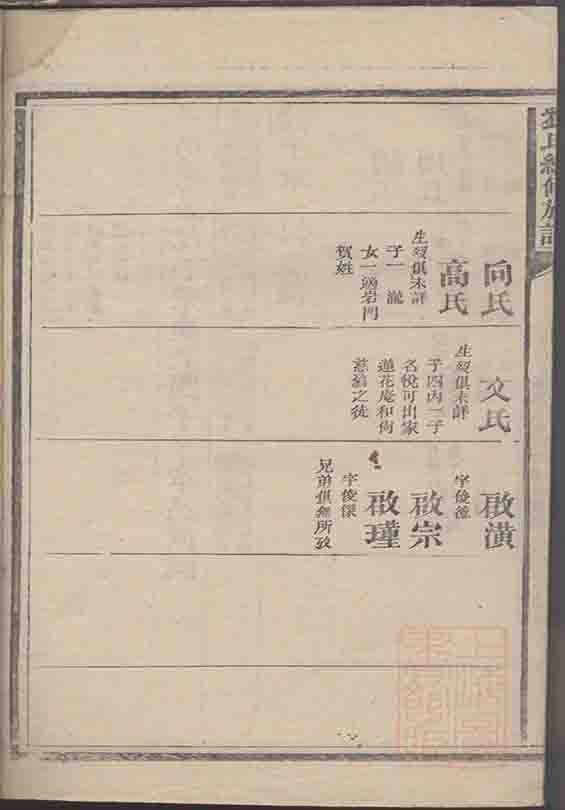 劉氏續修族譜
向氏
高氏
生歿俱未詳
子一 瀧
女一適岩門
賀姓
文氏
生歿俱未詳
子四內三子
名悅可出家
蓮花庵和尚
慈
之徒
啟潢
字俊德
啟宗
啟瑾
字俊傑
兄弟俱無所攷
上海圖